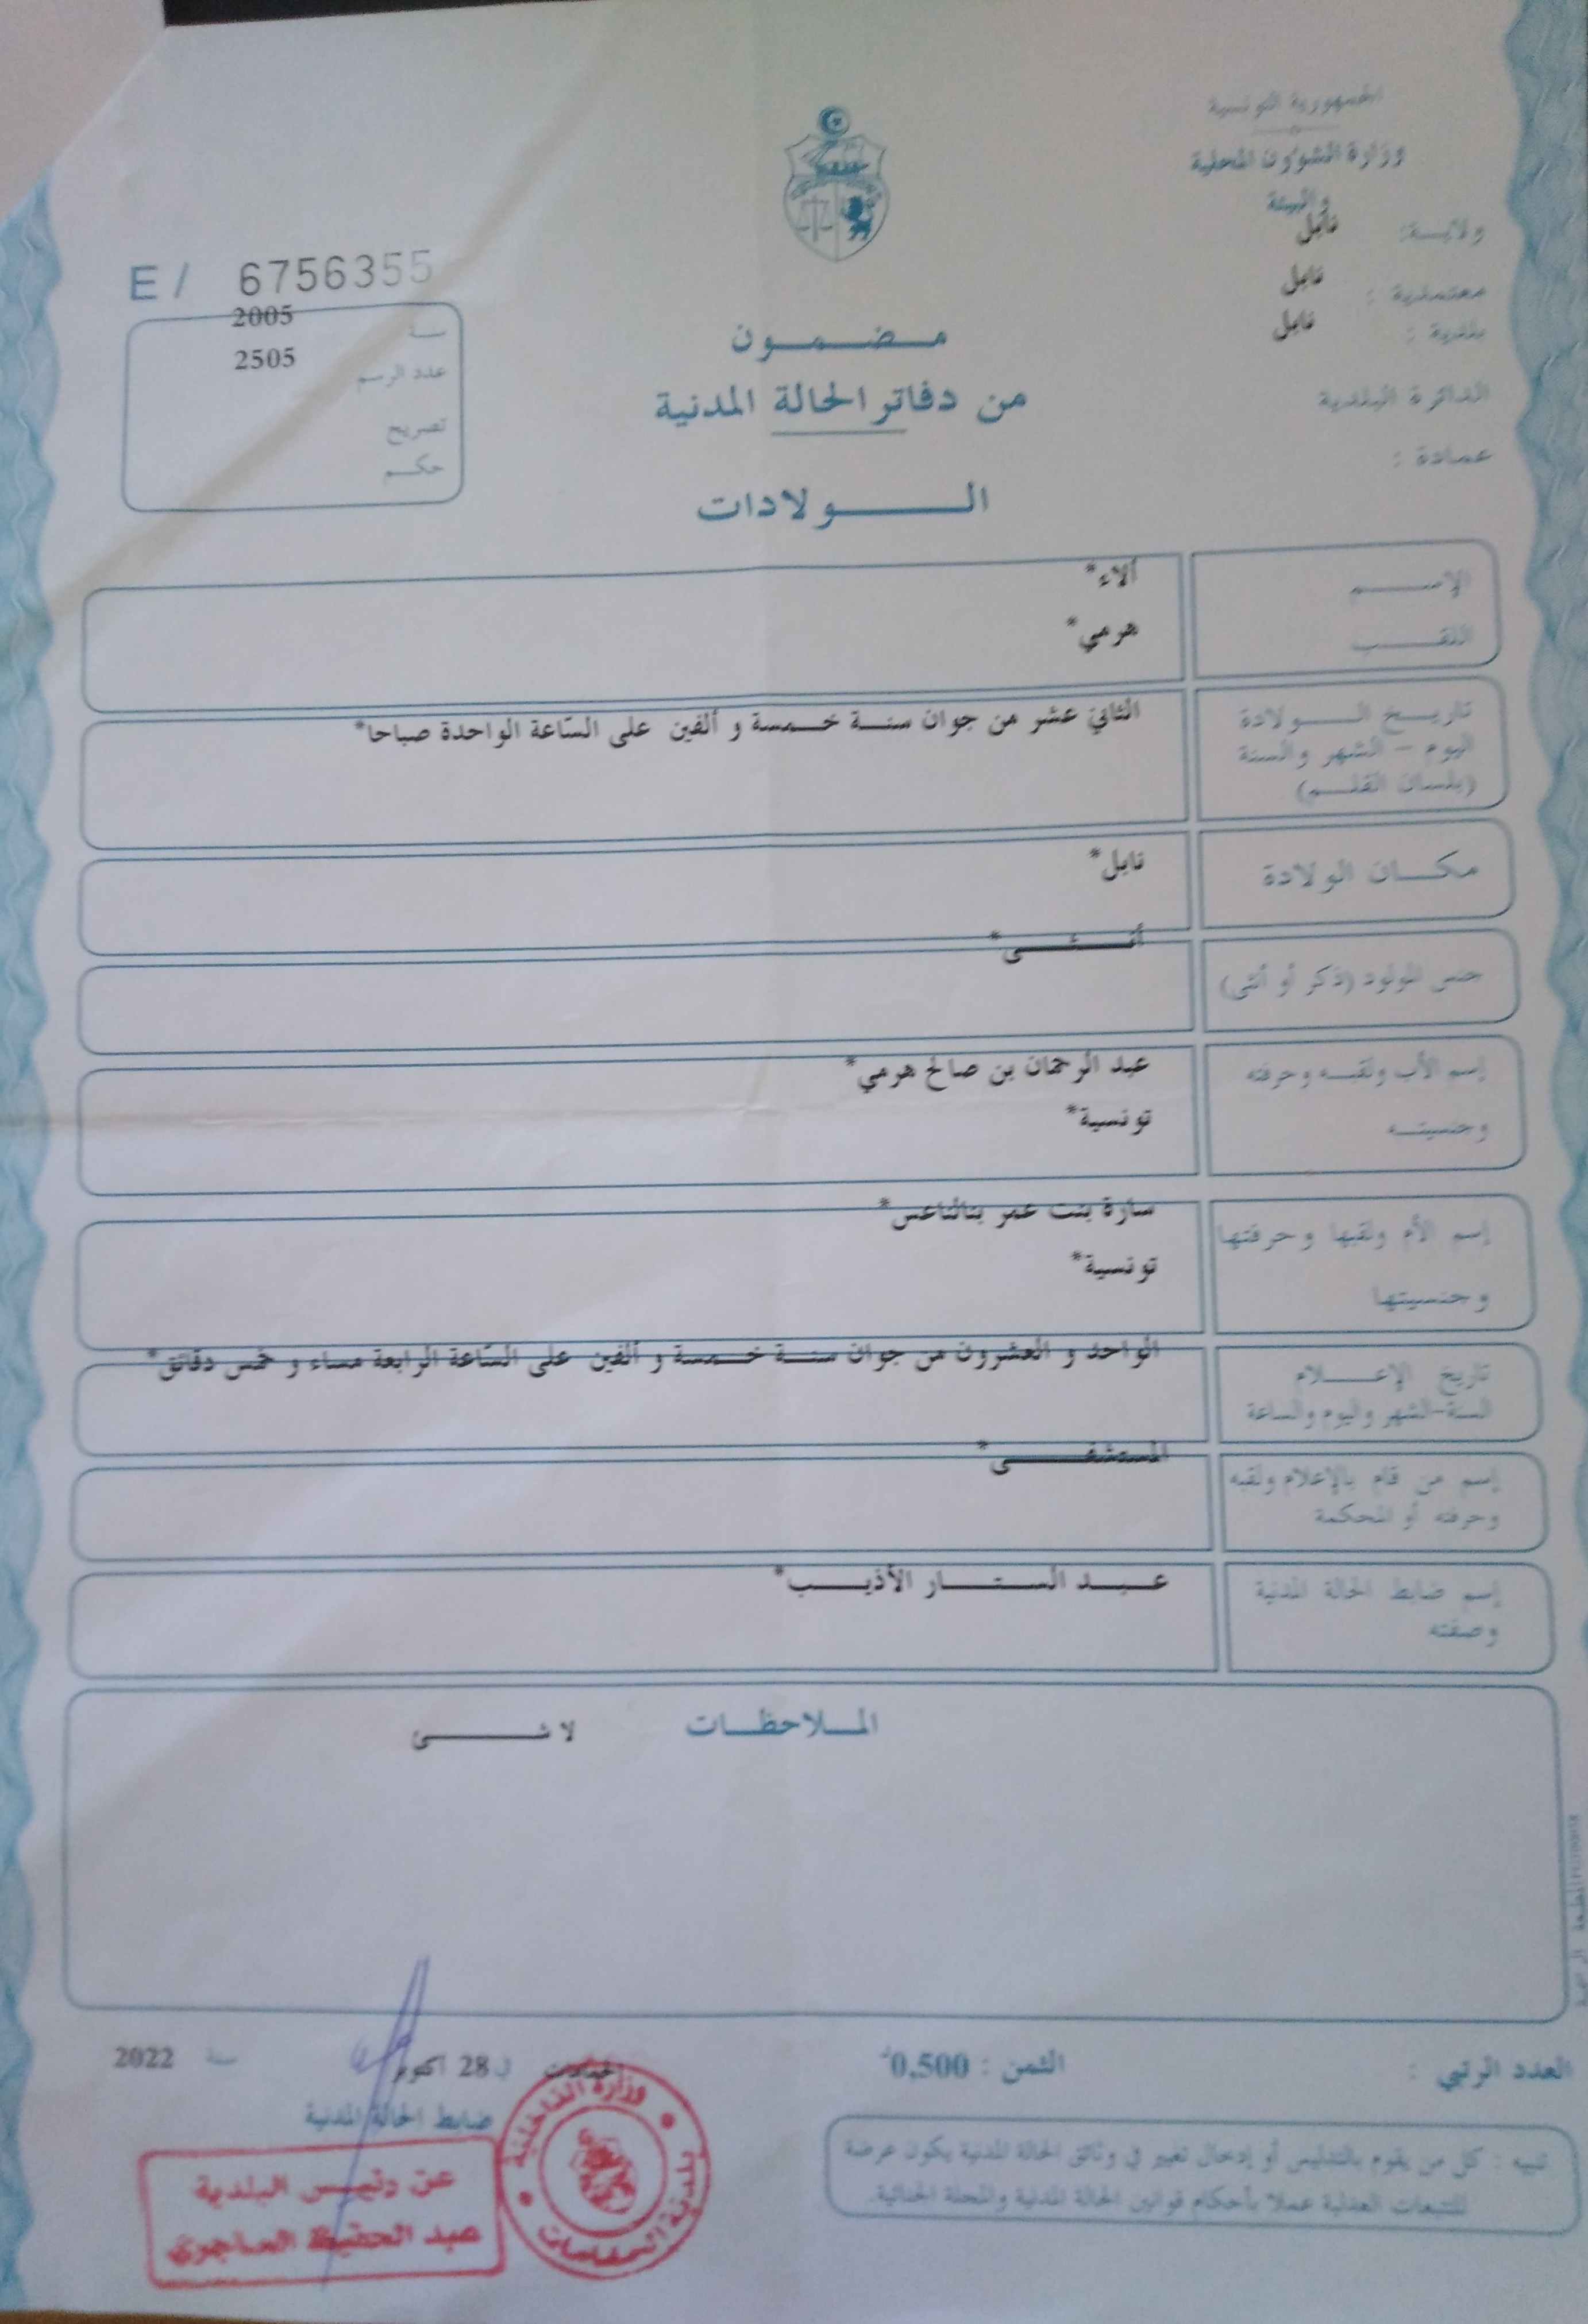 الجمهورية التونسية
وزارة الشؤون المحلية
والبيئة
ولايــة: نابل
معتمدية : نابل
بلدية : نابل
الدائرة البلدية
عمادة :
E / 6756355
سنة 2005
عدد الرسم 2505
تصريح
حكم
مضمون
من دفاتر الحالة المدنية
الولادات
الإسم آلاء*
اللقب هرمي*
تاريخ الولادة الثاني عشر من جوان سنة خمسة و ألفين على السّاعة الواحدة صباحا*
اليوم - الشهر والسنة
(بلسان القلم)
مكان الولادة نابل*
جنس المولود (ذكر أو أنثى) أنثى*
إسم الأب ولقبه وحرفته عبد الرحمان بن صالح هرمي*
وجنسيته تونسية*
إسم الأم ولقبها وحرفتها سارة بنت عمر بنالناعس*
وجنسيتها تونسية*
تاريخ الإعلام الواحد و العشرون من جوان سنة خمسة و ألفين على السّاعة الرابعة مساء و خمس دقائق*
السنة-الشهر واليوم والساعة
إسم من قام بالإعلام ولقبه المستشفى*
وحرفته أو المحكمة
إسم ضابط الحالة المدنية عبد الستار الأذيب*
وصفته
الملاحظات لا شئ
العدد الرتبي :
الثمن : 0,500د
في 28 أكتوبر سنة 2022
ضابط الحالة المدنية
عن رئيس البلدية
عبد الحفيظ الساجوي
وزارة الداخلية
تنبيه : كل من يقوم بالتدليس أو إدخال تغيير في وثائق الحالة المدنية يكون عرضة
للتتبعات العدلية عملا بأحكام قوانين الحالة المدنية والمجلة الجنائية.